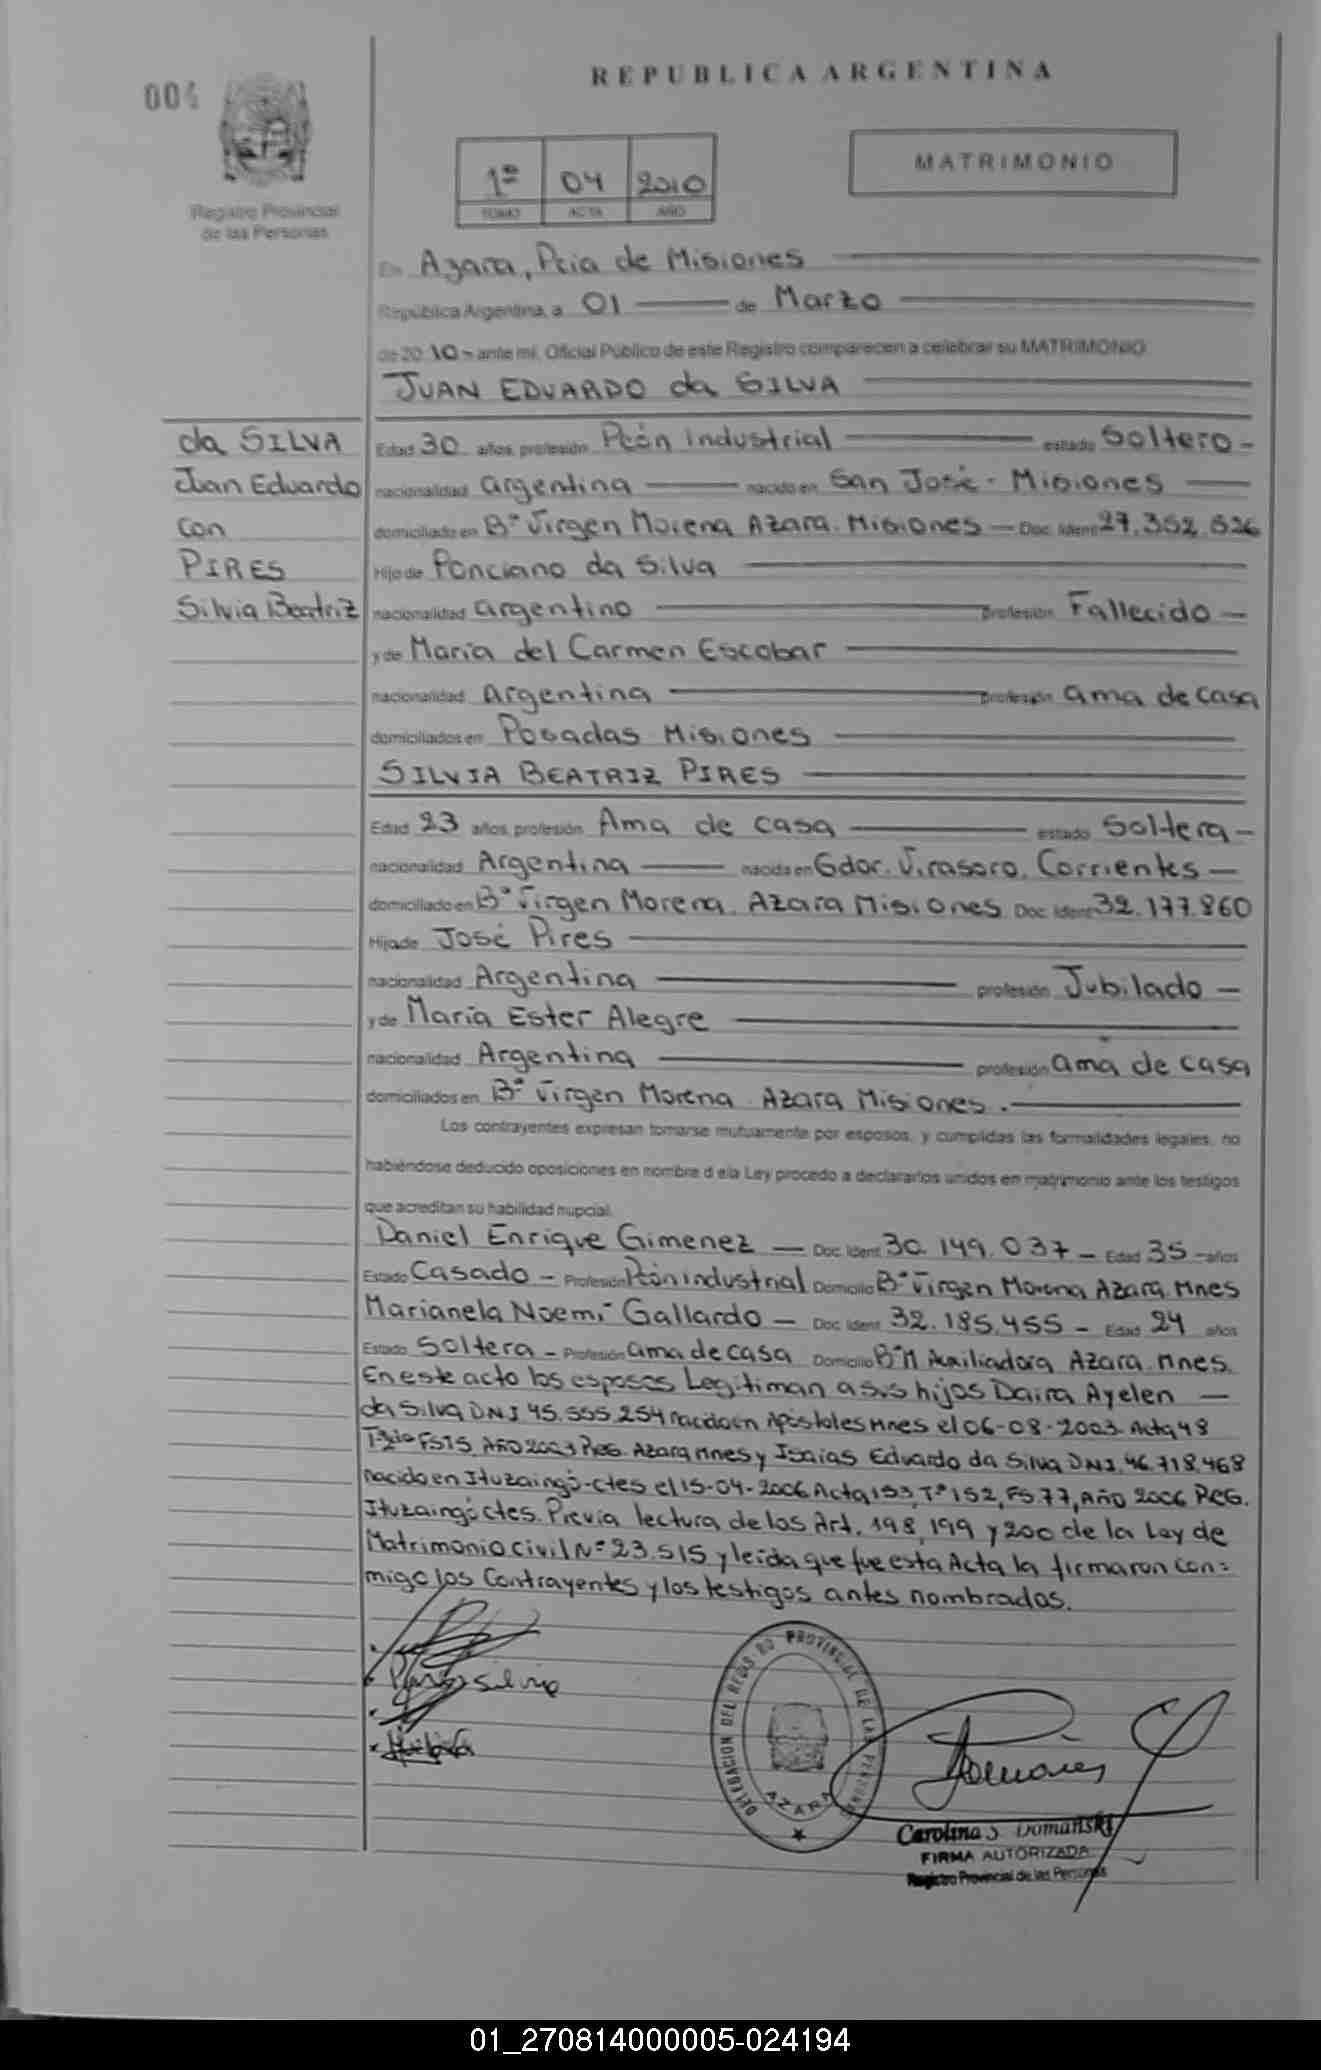 004
REPUBLICA ARGENTINA
1º 04 2010
TOMO ACTA AÑO
MATRIMONIO
Registro Provincial
de las Personas
En Azara, Pcia de Misiones
República Argentina, a 01 de Marzo
de 20 10 - ante mí, Oficial Público de este Registro comparecen a celebrar su MATRIMONIO
JUAN EDUARDO da SILVA
da SILVA
Juan Eduardo
con
PIRES
Silvia Beatriz
Edad 30 años, profesión Peón industrial estado Soltero -
nacionalidad argentina nacido en San José - Misiones
domiciliado en Bº Virgen Morena Azara. Misiones - Doc. Ident 27.352.526
Hijo de Ponciano da Silva
nacionalidad argentino profesión Fallecido -
y de María del Carmen Escobar
nacionalidad Argentina profesión ama de casa
domiciliados en Posadas Misiones
SILVIA BEATRIZ PIRES
Edad 23 años, profesión Ama de casa estado Soltera -
nacionalidad Argentina nacida en Gdor. Virasoro. Corrientes -
domiciliado en Bº Virgen Morena. Azara Misiones Doc. Ident 32.177.860
Hija de José Pires
nacionalidad Argentina profesión Jubilado -
y de María Ester Alegre
nacionalidad Argentina profesión ama de casa
domiciliados en Bº Virgen Morena. Azara Misiones.
Los contrayentes expresan tomarse mutuamente por esposos, y cumplidas las formalidades legales, no
habiéndose deducido oposiciones en nombre d ela Ley procedo a declararlos unidos en matrimonio ante los testigos
que acreditan su habilidad nupcial.
Daniel Enrique Gimenez - Doc. Ident 30.149.037 - Edad 35 - años
Estado Casado - Profesión Peón industrial Domicilio Bº Virgen Morena Azara. Mnes
Marianela Noemí Gallardo - Doc. Ident 32.185.455 - Edad 24 años
Estado Soltera - Profesión ama de casa Domicilio Bº M Auxiliadora Azara. Mnes.
En este acto los esposos Legitiman a sus hijos Daira Ayelen -
da Silva DNI 45.555.254 nacida en Apóstoles Mnes el 06-08-2003. Acta 48
AÑO 2003 Reg. Azara Mnes y Isaias Eduardo da Silva DNI. 46.718.468
nacido en Ituzaingó-ctes el 15-04-2006 Acta 153, Tº 152, FS 77, Año 2006 Reg.
Ituzaingó ctes. Previa lectura de los Art. 198, 199 y 200 de la Ley de
Matrimonio Civil Nº 23.515 y leída que fue esta Acta la firmaron con=
migo los Contrayentes y los testigos antes nombrados.
Pires silvia
DELEGACION DEL REGISTRO PROVINCIAL DE LAS PERSONAS
AZARA
Carolina S Domanski
FIRMA AUTORIZADA
Registro Provincial de las Personas
01_270814000005-024194